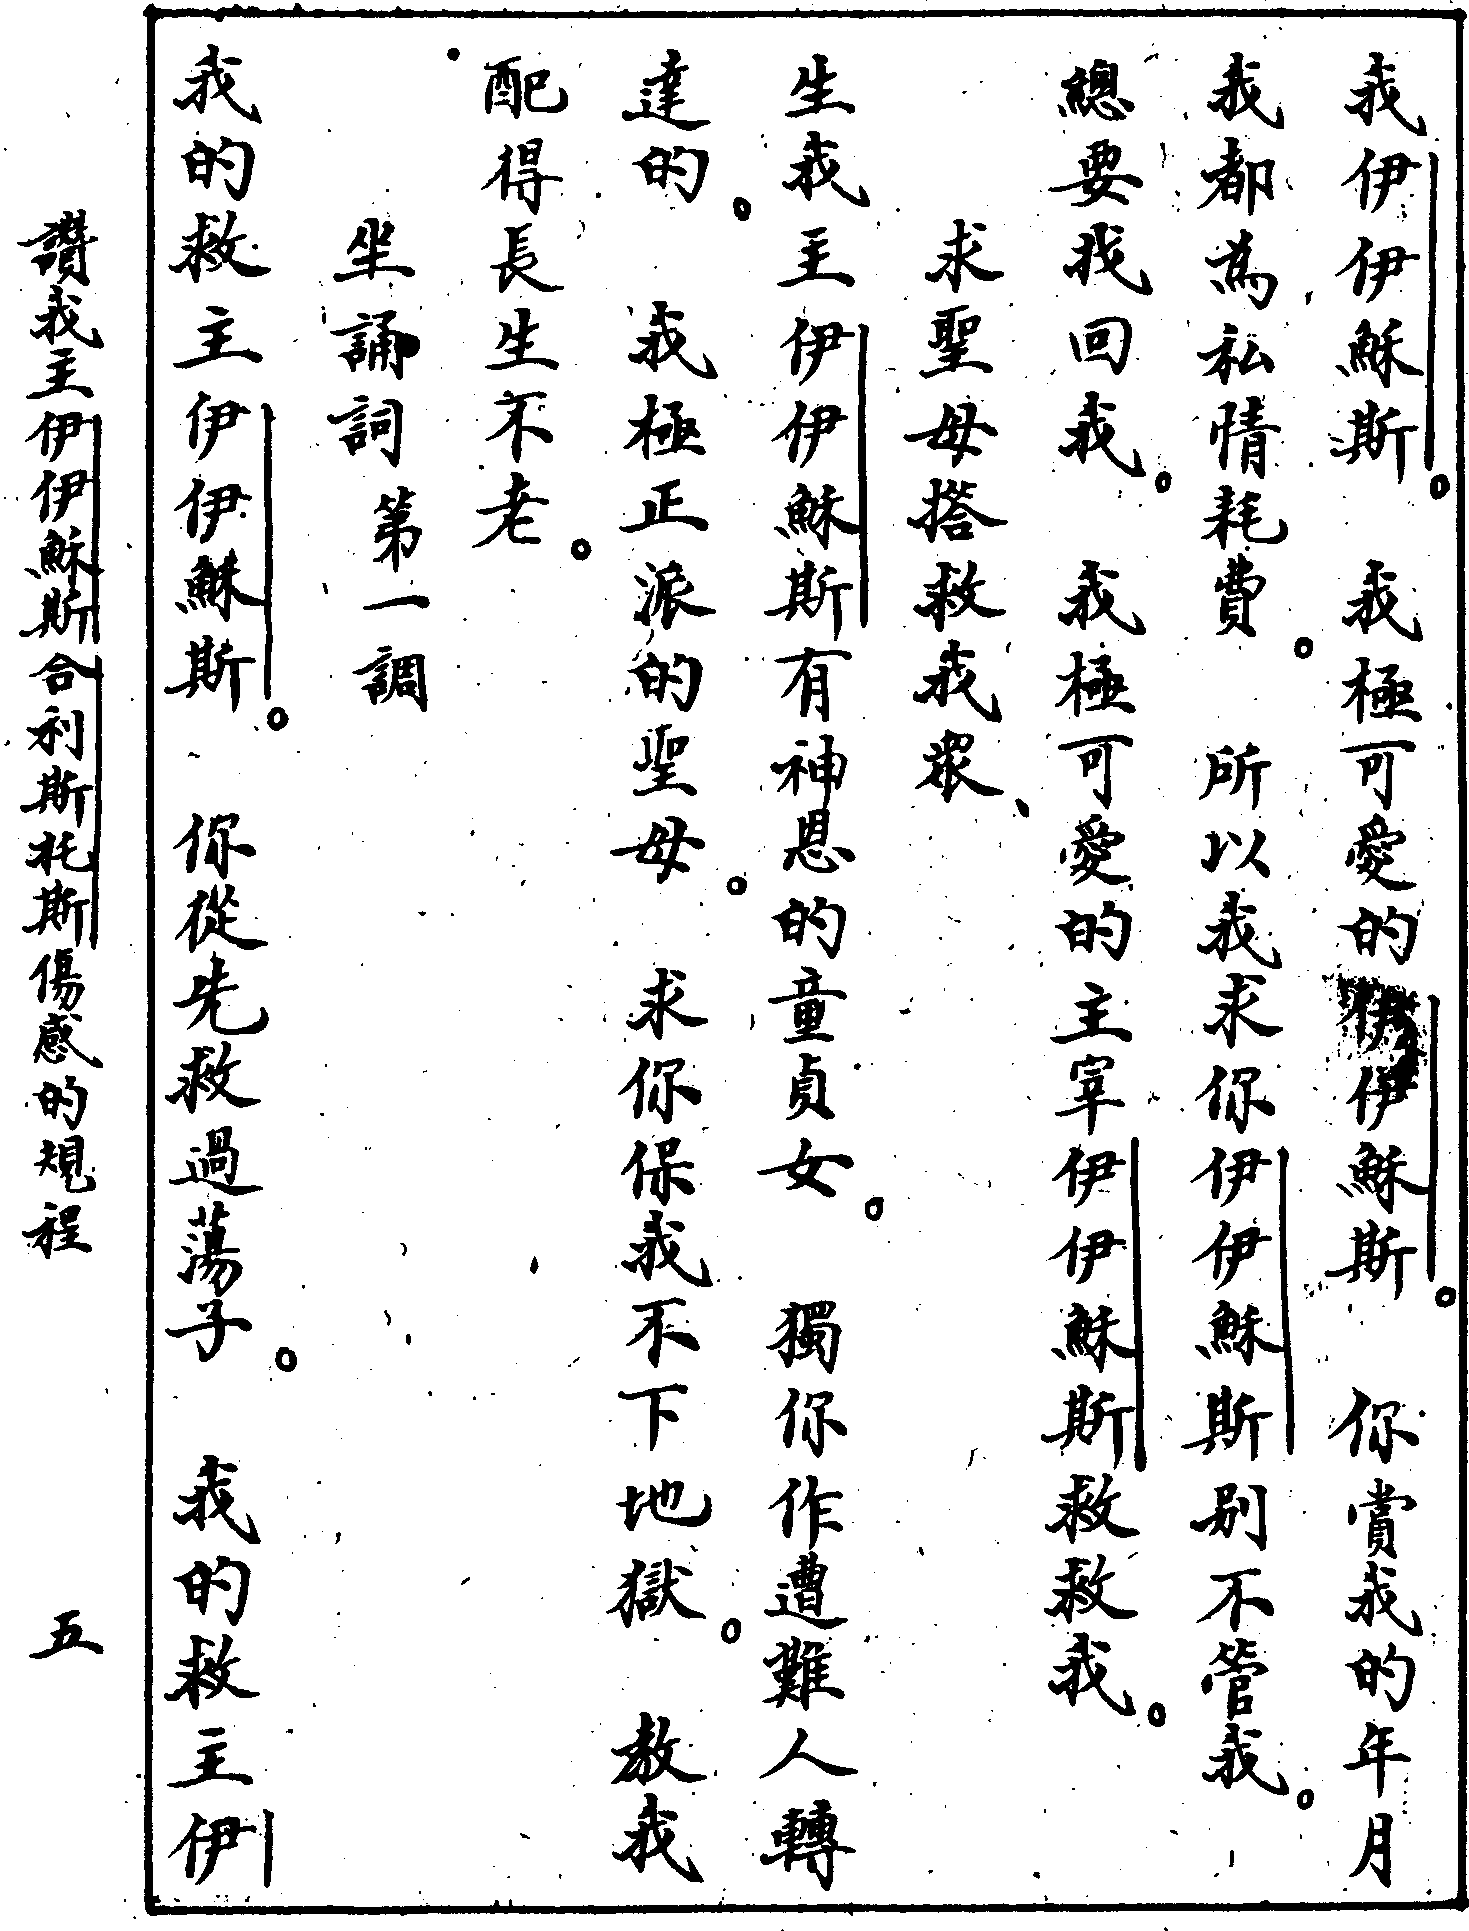 我伊伊穌斯。我極可愛的伊伊穌斯。你賞我的年月
我都為私情耗費。所以我求你伊伊穌斯别不管我。
總要我回我。我極可愛的主宰伊伊穌斯救救我。
求聖母搭救我衆、
生我主伊伊穌斯有神恩的童貞女。獨你作遭難人轉
達的。我極正派的聖母。求你保我不下地獄。教我
配得長生不老。
坐誦詞 第一調
我的救主伊伊穌斯。你從先救過蕩子。我的救主伊
讚我主伊伊穌斯合利斯托斯傷感的規程 五